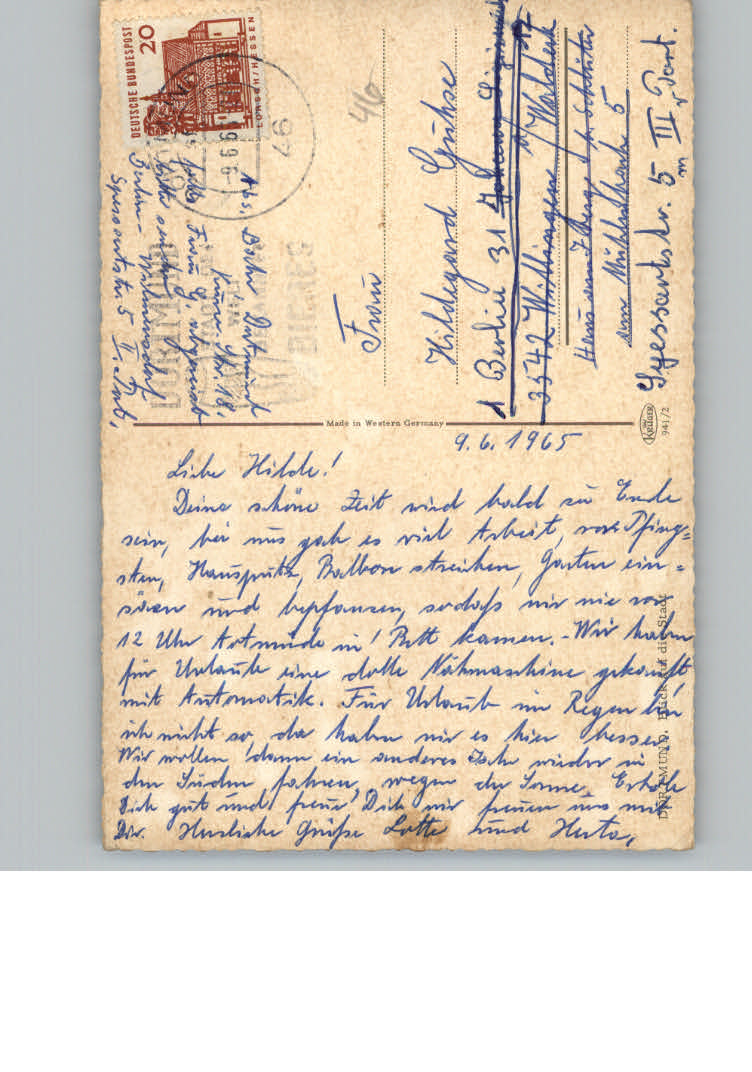 9.6.1965
Liebe Hilde!
Deine schöne Zeit wird bald zu Ende
sein, bei uns gab es viel Arbeit, vor Pfing=
sten, Hausputz, Balkon streichen, Garten ein=
säen und bepflanzen, sodaß wir nie vor
12 Uhr in! Bett kamen. - Wir haben
für Urlaub eine dolle Nähmaschine gekauft
mit Automatik. Für Urlaub im Regen bin
ich nicht so, da haben wir es hier besser.
Wir wollen dann ein anderes Jahr wieder in
den Süden fahren, wegen der Sonne. Erhole
Dich gut und freue Dich wir freuen uns mit
Dir. Herzliche Grüße Lotte und Herta,
DORTMUND, Blick auf die Stadt
Made in Western Germany
KRÜGER
941/2
DEUTSCHE BUNDESPOST
20
LORSCH/HESSEN
46
-9.6.65
DORTMUND
46
Abs. Dortmund
falls Frau G. abgereist
bitte senden
Berlin - Wilmersdorf
Spessartstr. 5 II. Part.
Frau
Hildegard
1 Berlin 31
3542 Willingen / Waldeck
Haus
am Mühlenbach 5
Spessartstr. 5 III Part.